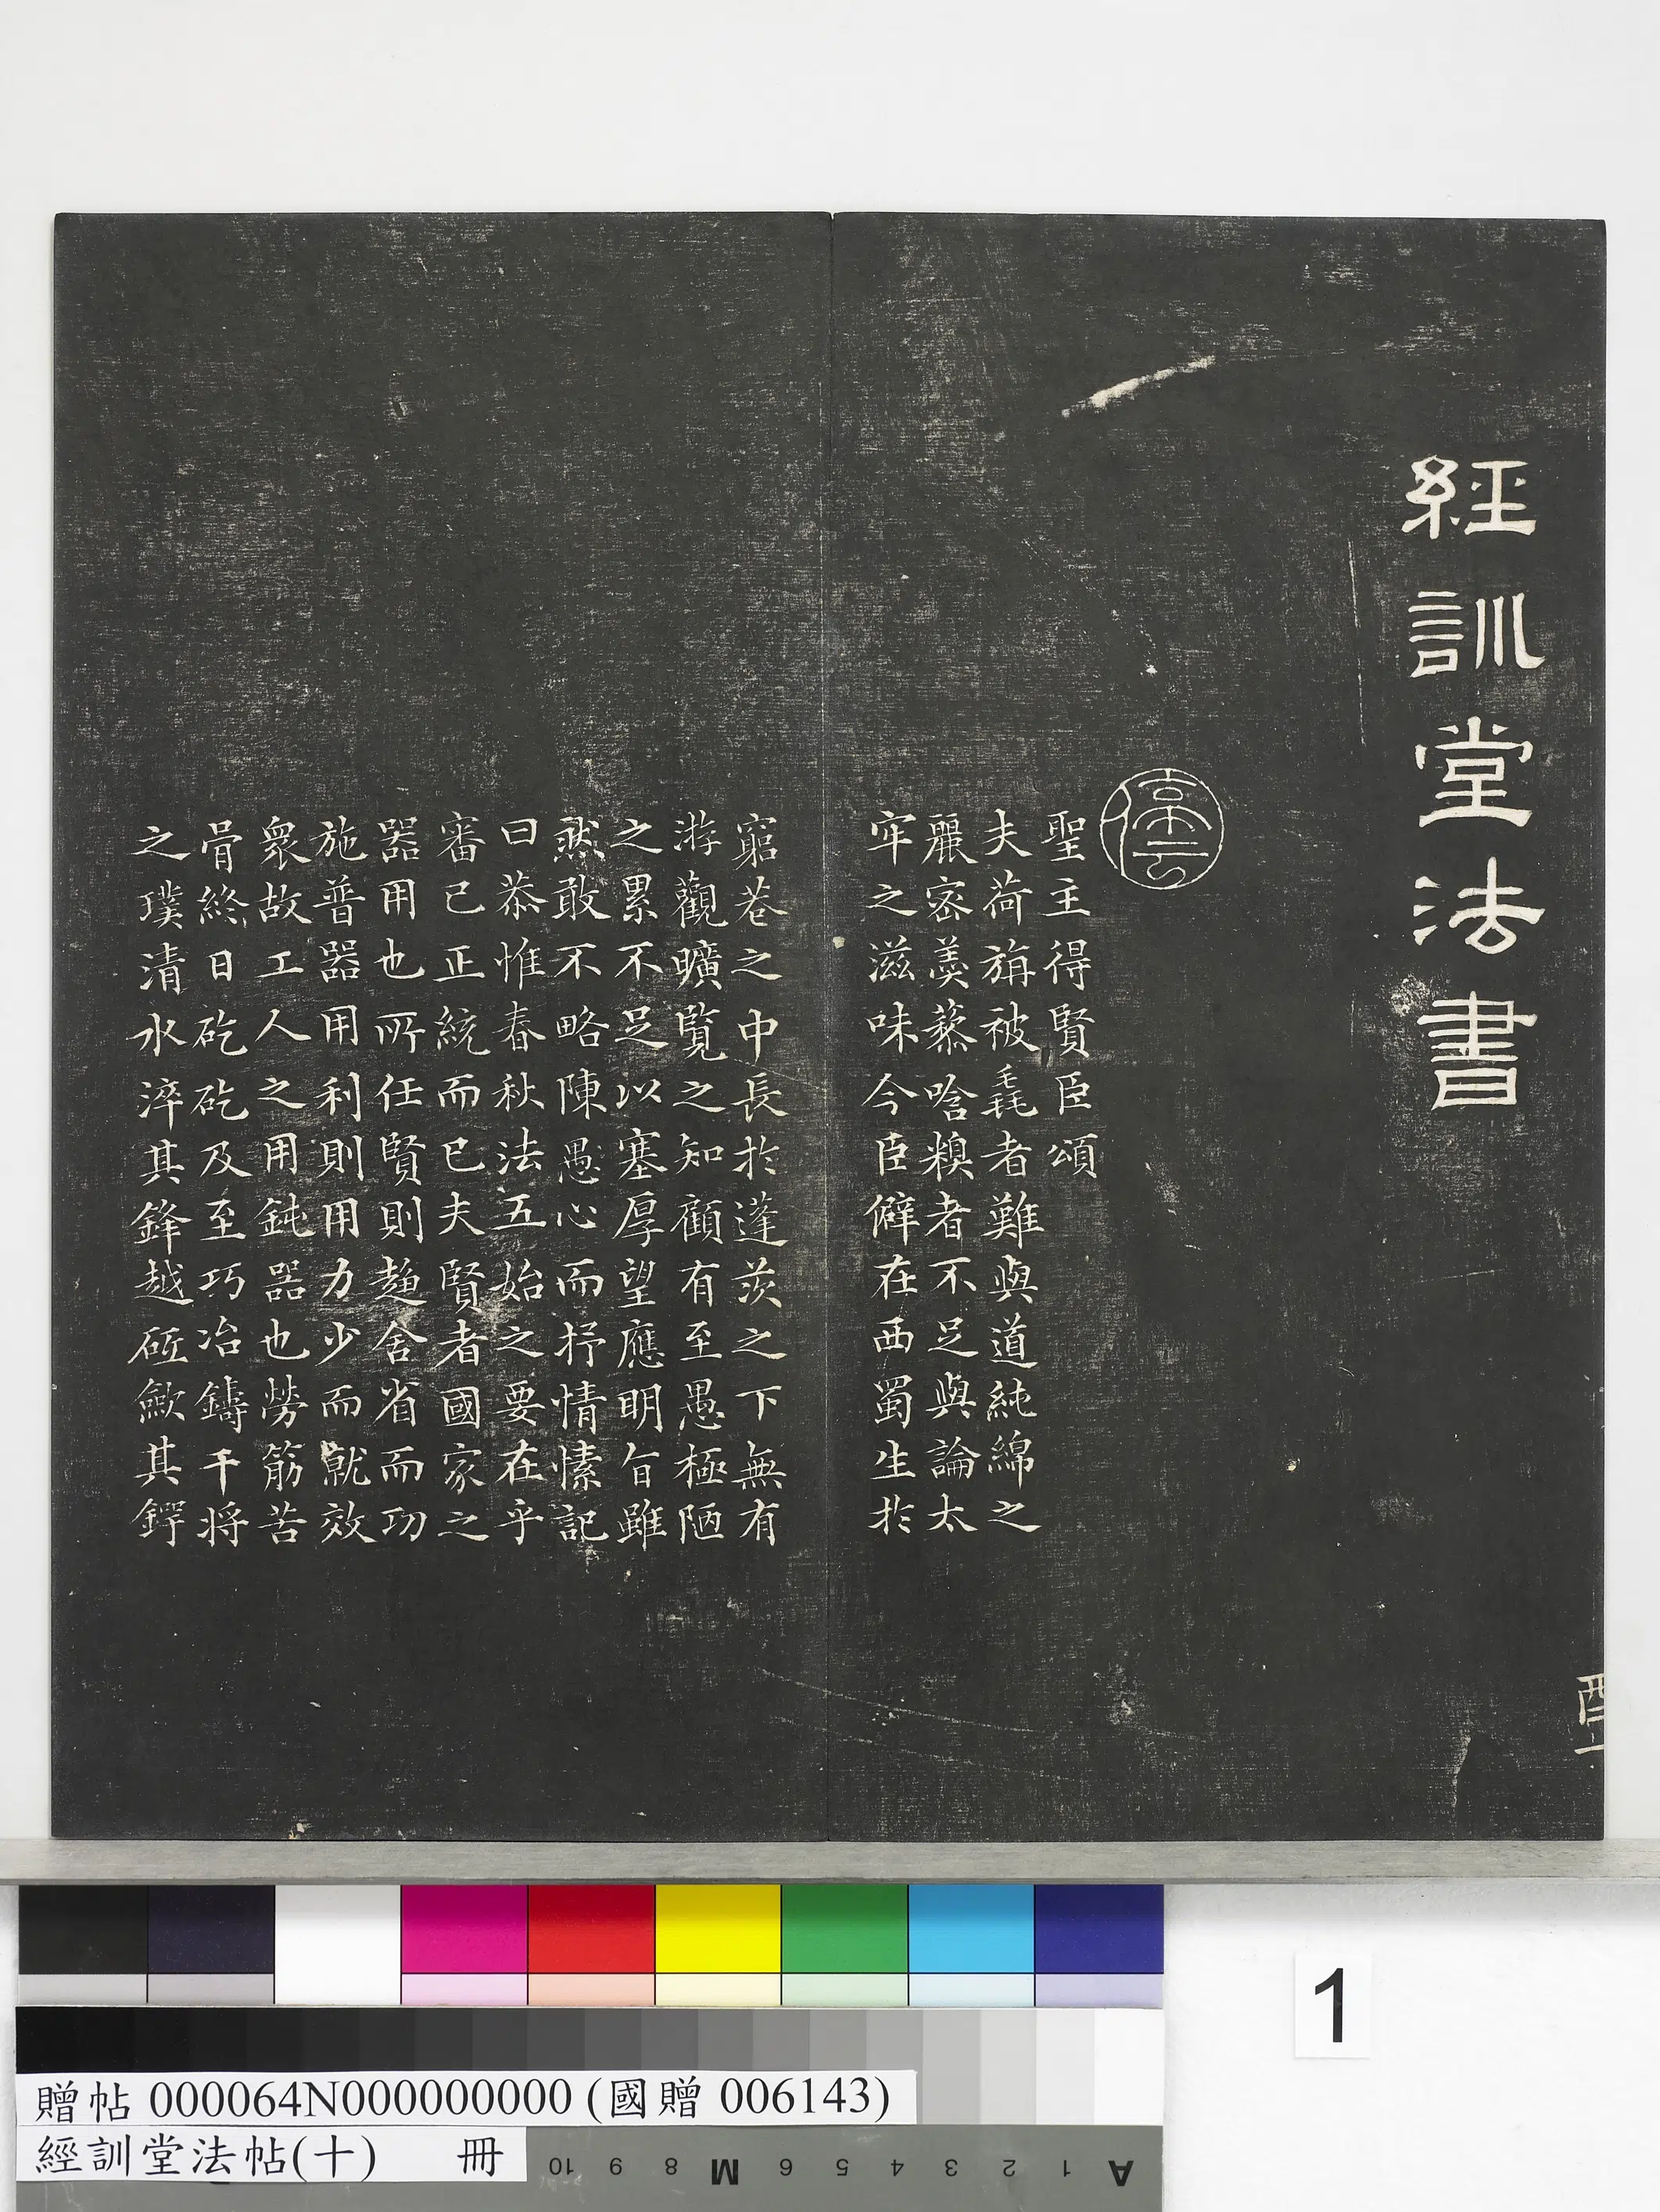 經訓堂法書
聖主得賢臣頌
夫荷旃被毳者難與道純綿之
麗密羹藜唅糗者不足與論太
牢之滋味今臣僻在西蜀生於
窮巷之中長於蓬茨之下無有
游觀曠覽之知顧有至愚極陋
之累不足以塞厚望應明旨雖
然敢不略陳愚心而抒情愫記
曰恭惟春秋法五始之要在乎
審己正統而已夫賢者國家之
器用也所任賢則趨舍省而功
施普器用利則用力少而就效
衆故工人之用鈍器也勞筋苦
骨終日矻矻及至巧冶鑄干將
之璞清水淬其鋒越砥斂其鍔
1
贈帖 000064N000000000 (國贈 006143)
經訓堂法帖(十) 冊
A 1 2 3 4 5 6 M 8 9 10